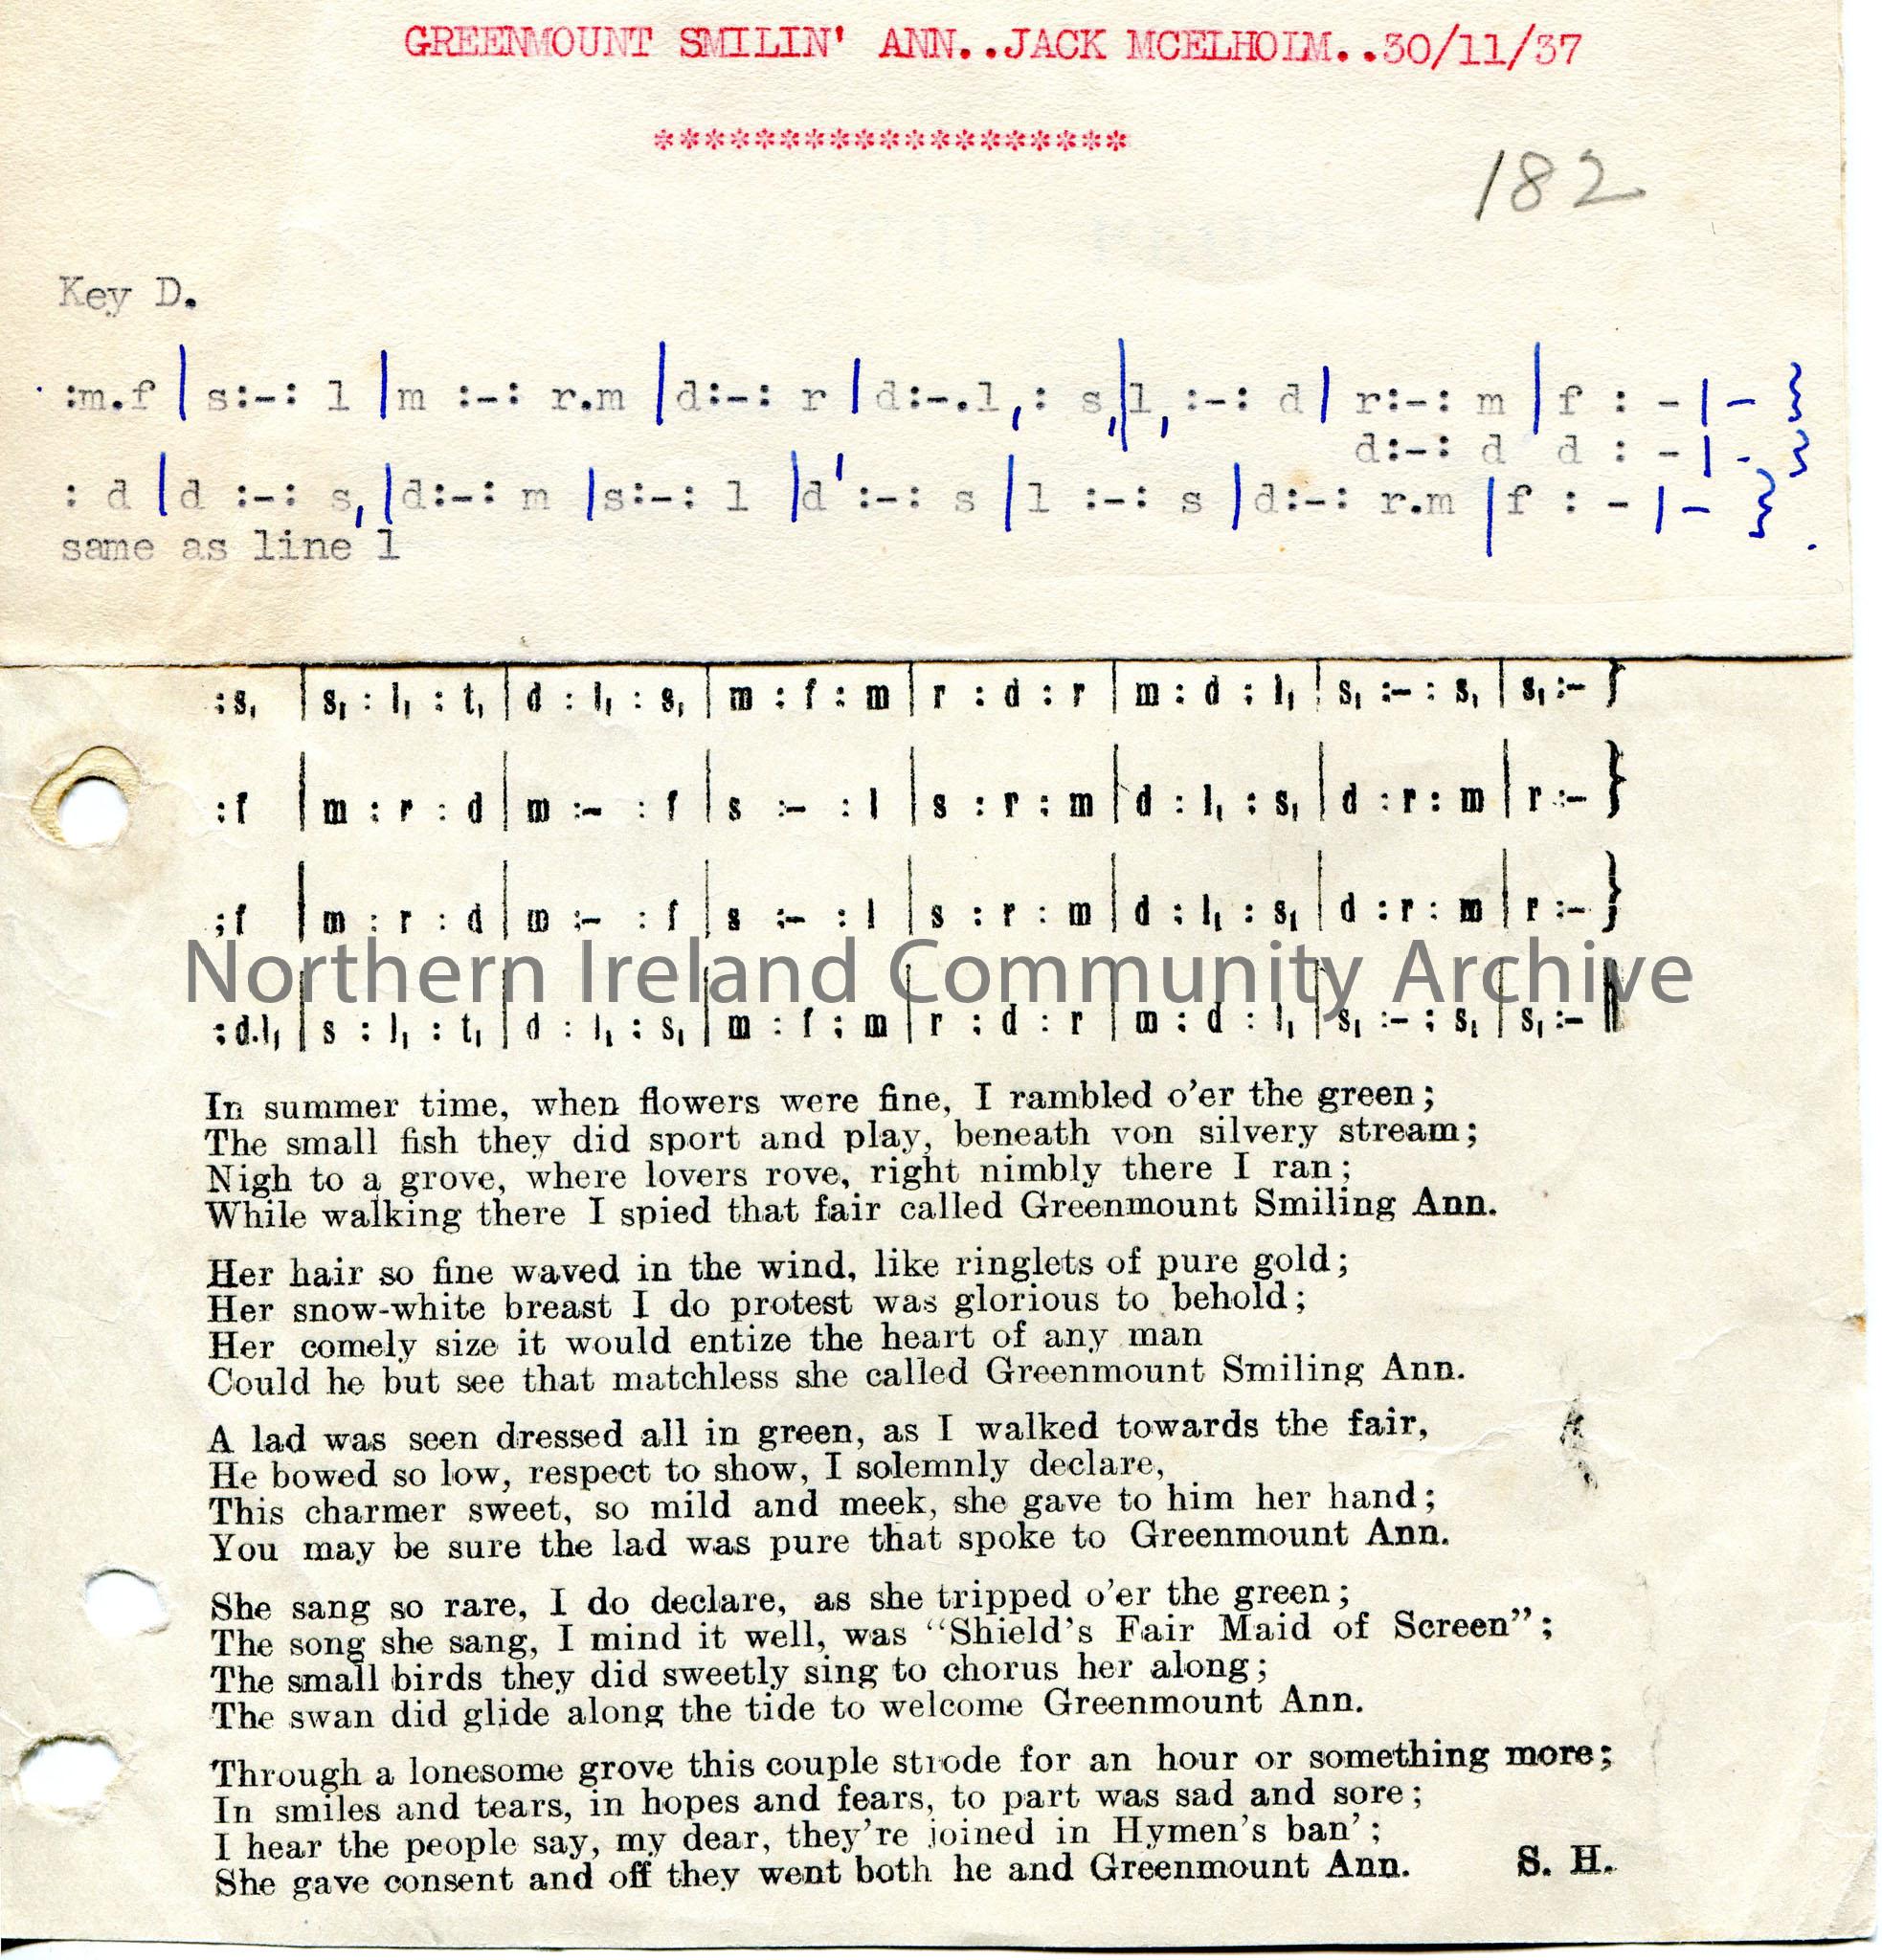 GREENMOUNT SMILIN' ANN..JACK MCELHOIM..30/11/37
*******************
182
Key D.
:m.f | s:-: l | m :-: r.m | d:-: r | d:-.l,: s,| l, :-: d | r:-: m | f : - | - }
d:-: d d : - | - }
: d | d :-: s, | d:-: m | s:-: l | d' :-: s | l :-: s | d:-: r.m | f : - | - }
same as line 1
:s₁ | s₁ : l₁ : t₁ | d : l₁ : s₁ | m : f : m | r : d : r | m : d : l₁ | s₁ :- : s₁ | s₁ :- }
:f | m : r : d | m :- : f | s :- : l | s : r : m | d : l₁ : s₁ | d : r : m | r :- }
:f | m : r : d | m :- : f | s :- : l | s : r : m | d : l₁ : s₁ | d : r : m | r :- }
Northern Ireland Community Archive
:d.l₁ | s : l₁ : t₁ | d : l₁ : s₁ | m : f : m | r : d : r | m : d : l₁ | s₁ :- : s₁ | s₁ :- ‖
In summer time, when flowers were fine, I rambled o'er the green;
The small fish they did sport and play, beneath von silvery stream;
Nigh to a grove, where lovers rove, right nimbly there I ran;
While walking there I spied that fair called Greenmount Smiling Ann.
Her hair so fine waved in the wind, like ringlets of pure gold;
Her snow-white breast I do protest was glorious to behold;
Her comely size it would entize the heart of any man
Could he but see that matchless she called Greenmount Smiling Ann.
A lad was seen dressed all in green, as I walked towards the fair,
He bowed so low, respect to show, I solemnly declare,
This charmer sweet, so mild and meek, she gave to him her hand;
You may be sure the lad was pure that spoke to Greenmount Ann.
She sang so rare, I do declare, as she tripped o'er the green;
The song she sang, I mind it well, was "Shield's Fair Maid of Screen";
The small birds they did sweetly sing to chorus her along;
The swan did glide along the tide to welcome Greenmount Ann.
Through a lonesome grove this couple strode for an hour or something more;
In smiles and tears, in hopes and fears, to part was sad and sore;
I hear the people say, my dear, they're joined in Hymen's ban';
She gave consent and off they went both he and Greenmount Ann. S. H.